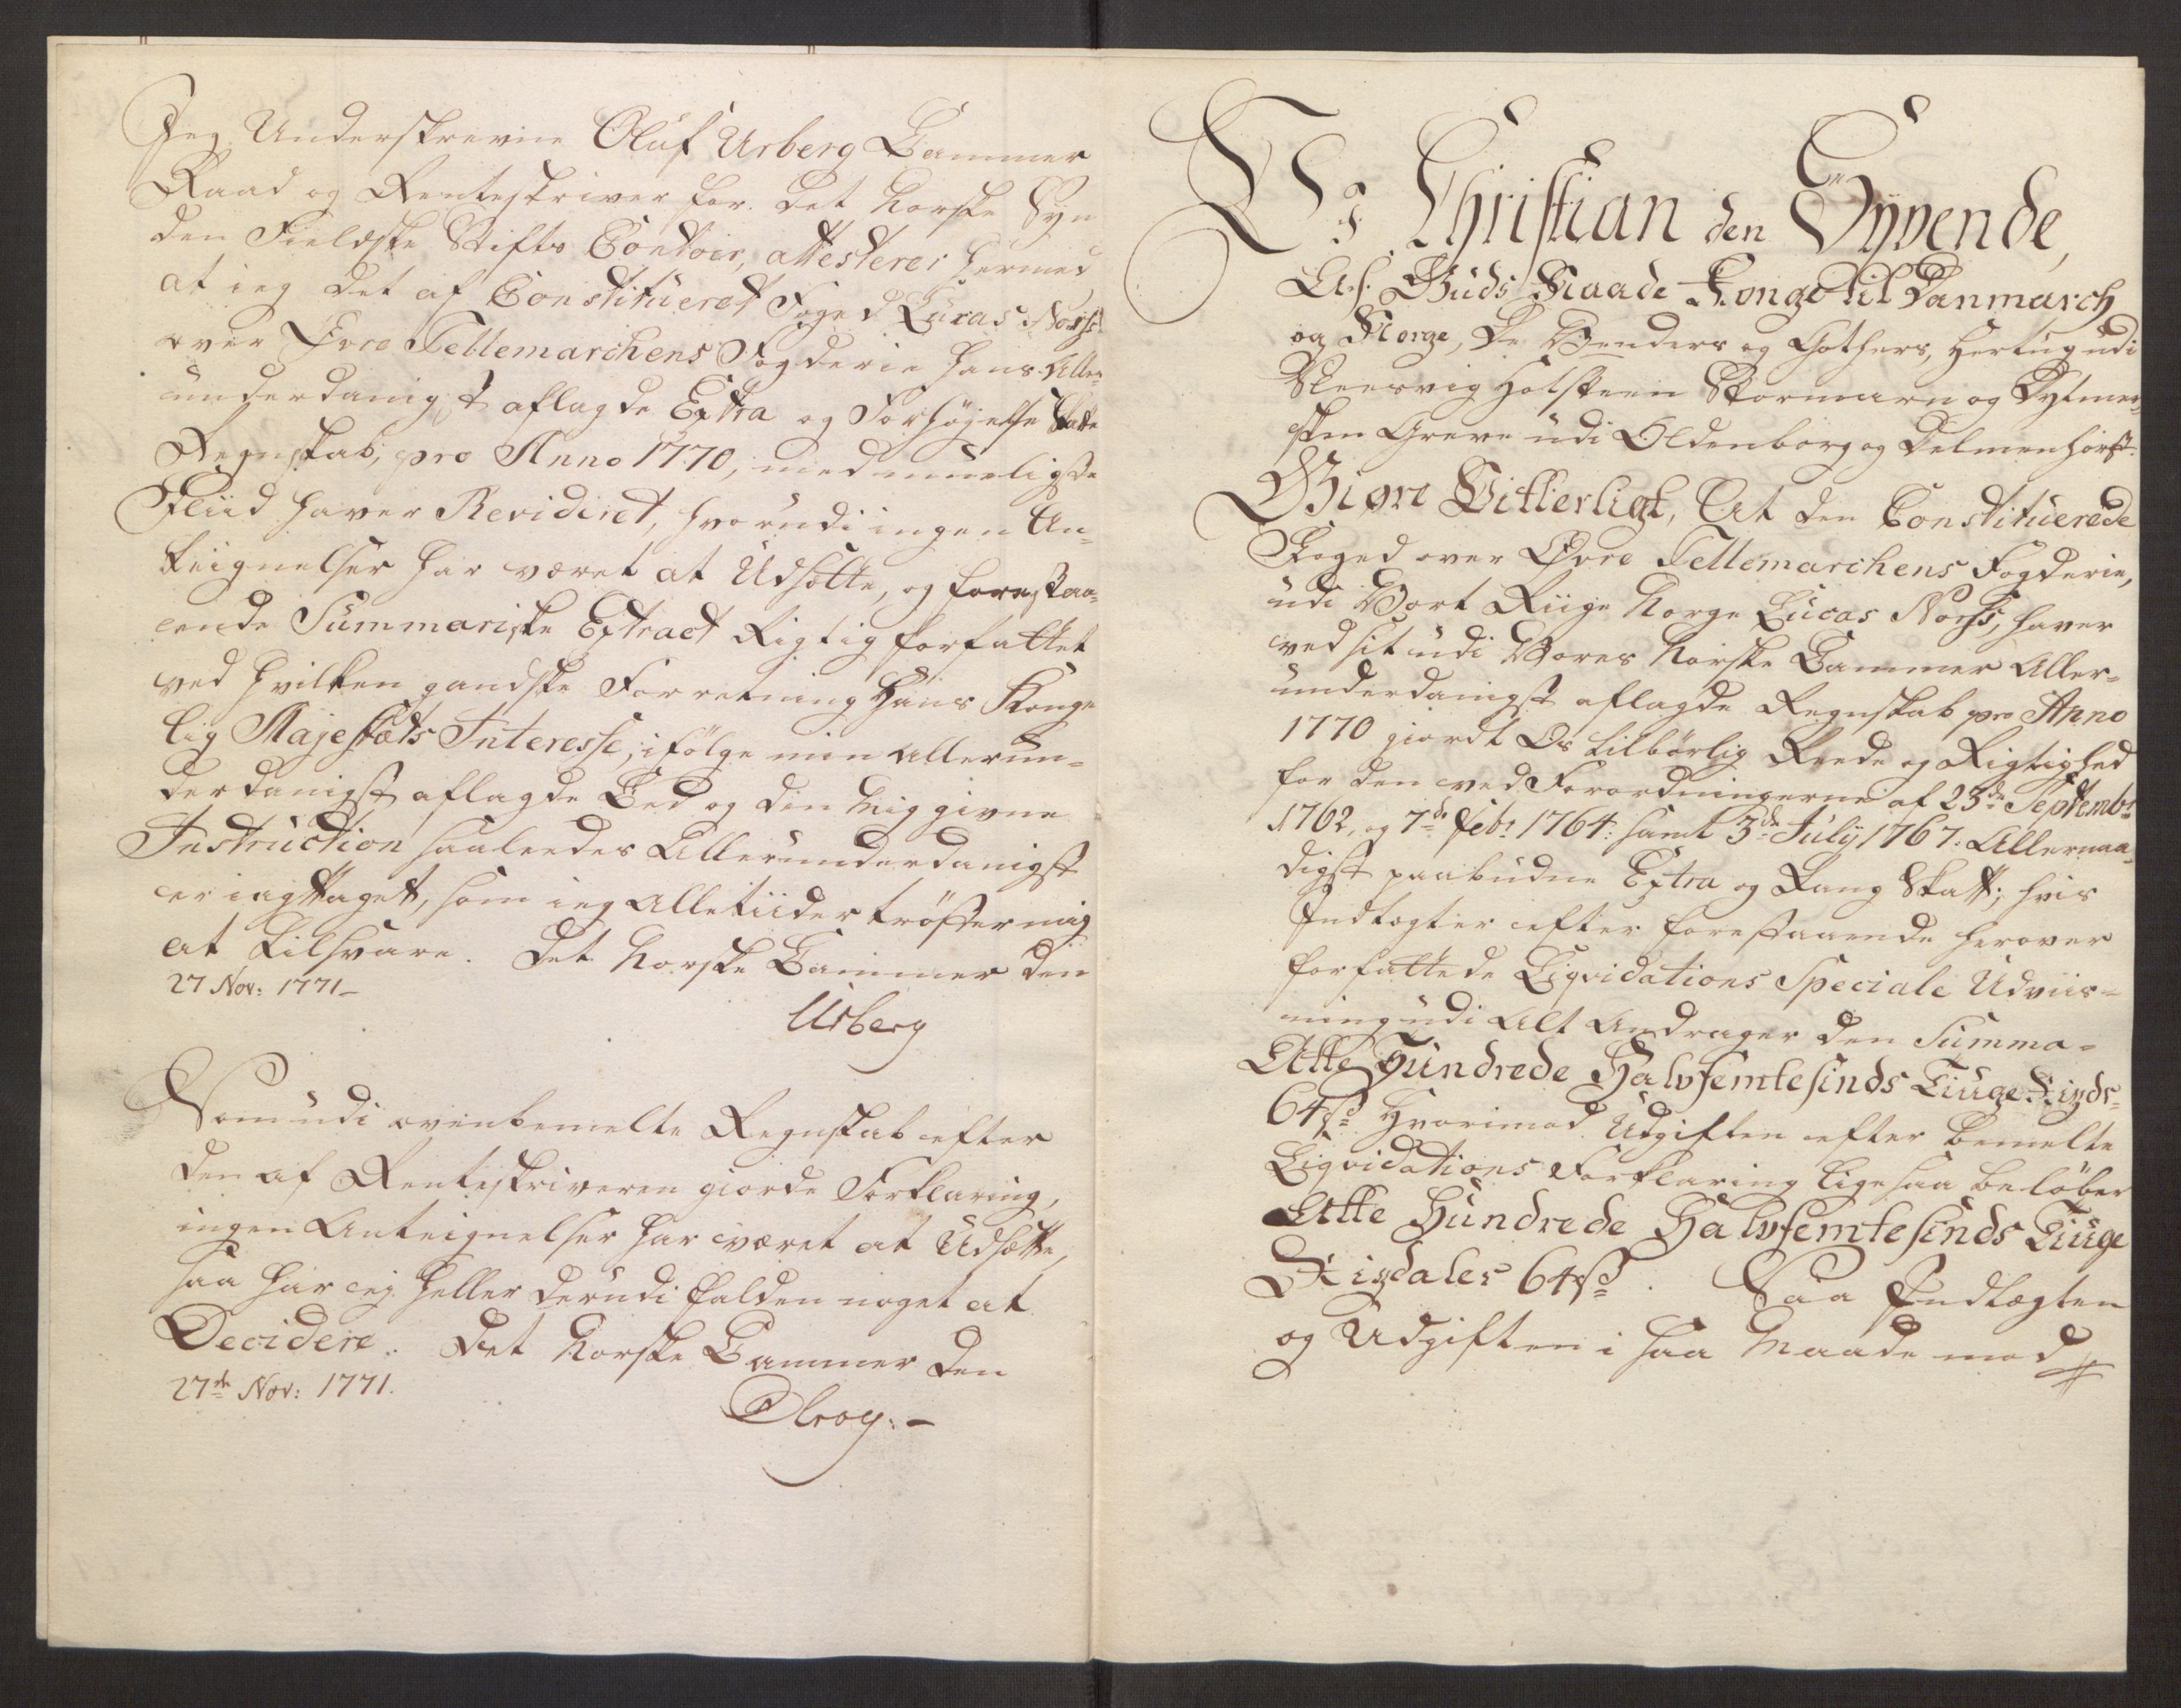 Jeg Underskrevne Oluf Urberg Cammer
Raad og Renteskriver for det Norske Syn
den Fieldske Stifts Contoir, attesterer hermed
at ieg det af Constitueret Foged Lucas Norss
over Øvre Tellemarchens Fogderie hans Aller¬
underdanigst aflagde Extra og Forhøyelse Skatte
Regnskab, pro Anno 1770, med mueligste
Fliid haver Revideret, hvorudi ingen An¬
teignelser har været at Udsætte, og forestaa¬
ende Summariske Extract Rigtig forfattet
ved hvilken gandske Forretning Hans Konge
lig Majestæts Interesse, ifølge min Allerun¬
derdanigst aflagde Eed og den Mig givne
Instruction saaledes Allerunderdanigst
er iagttaget, som ieg Alletiider trøster mig
at tilsvare. Det Norske Cammer den
27 Nov: 1771_
Urberg
Som udi ovenbemelte Regnskab efter
den af Renteskriveren giorde Forklaring,
ingen Anteignelser har været at Udsætte,
saa har ej heller derudi falden noget at
Decidere. Det Norske Cammer den
27de Nov: 1771.
Vi Christian den Syvende,
Af Guds Naade Konge til Danmarch
og Norge, De Wenders og Gothers, Hertug udi
Sleesvig Holsteen Stormarn og Dytmer¬
sken Greve udi Oldenborg og Delmenhorst.
Giøre Vitterligt, At den Constituerede
Foged over Øvre Tellemarchens Fogderie,
udi Vort Riige Norge Lucas Norss, haver
ved sit udi Vores Norske Cammer Aller¬
underdanigst aflagde Regnskab pro Anno
1770 giordt Os tilbørlig Reede og Rigtighed
for den ved Forordningerne af 23de Septembr
1762, og 7de Febr 1764: samt 3de July 1767. Allernaa¬
digst paabudne Extra og Rang Skatt; hvis
Indtægter efter forestaaende herover
forfattede Liqvidations Speciale Udviis¬
ning udi Alt Andrager den Summa =
Atte Hundrede Halvfemtesinds Tiuge Rixdr
64 s Hvorimod Udgiften efter bemelte
Liqvidations Forklaring lige saa beløber
Atte Hundrede Halvfemtesinds Tiuge
Rixdaler 64 s. Saa Indtægten
og Udgiften i saa Maade mod